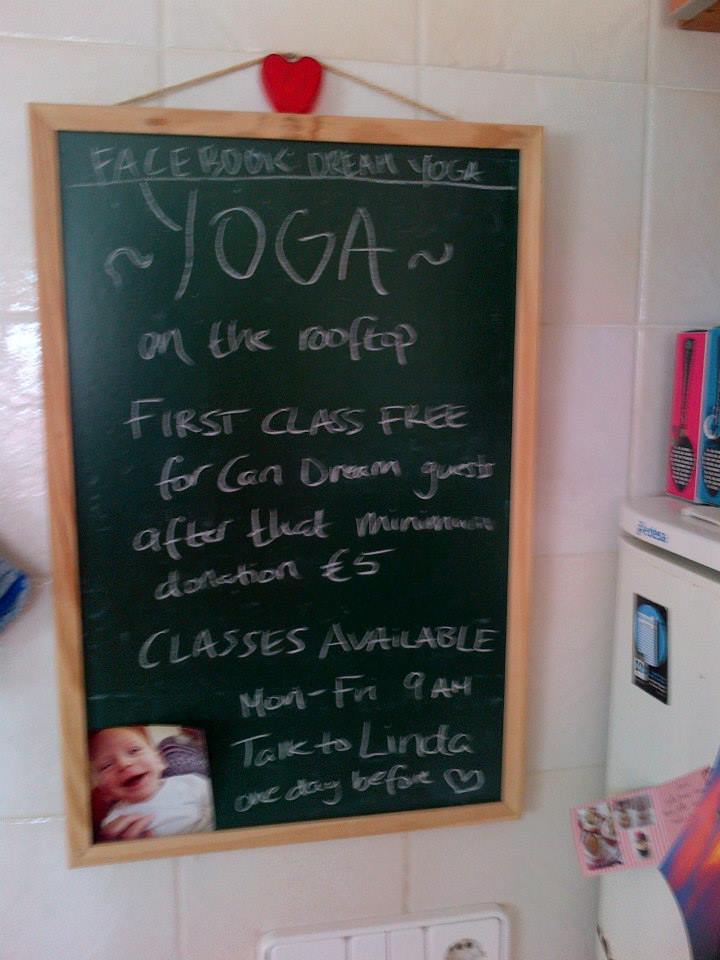 FACEBOOK DREAM YOGA
~YOGA~
on the rooftop
FIRST CLASS FREE
for Can Dream guests
after that minimum
donation €5
CLASSES AVAILABLE
Mon-Fri 9AM
Talk to Linda
one day before ♡
edesa